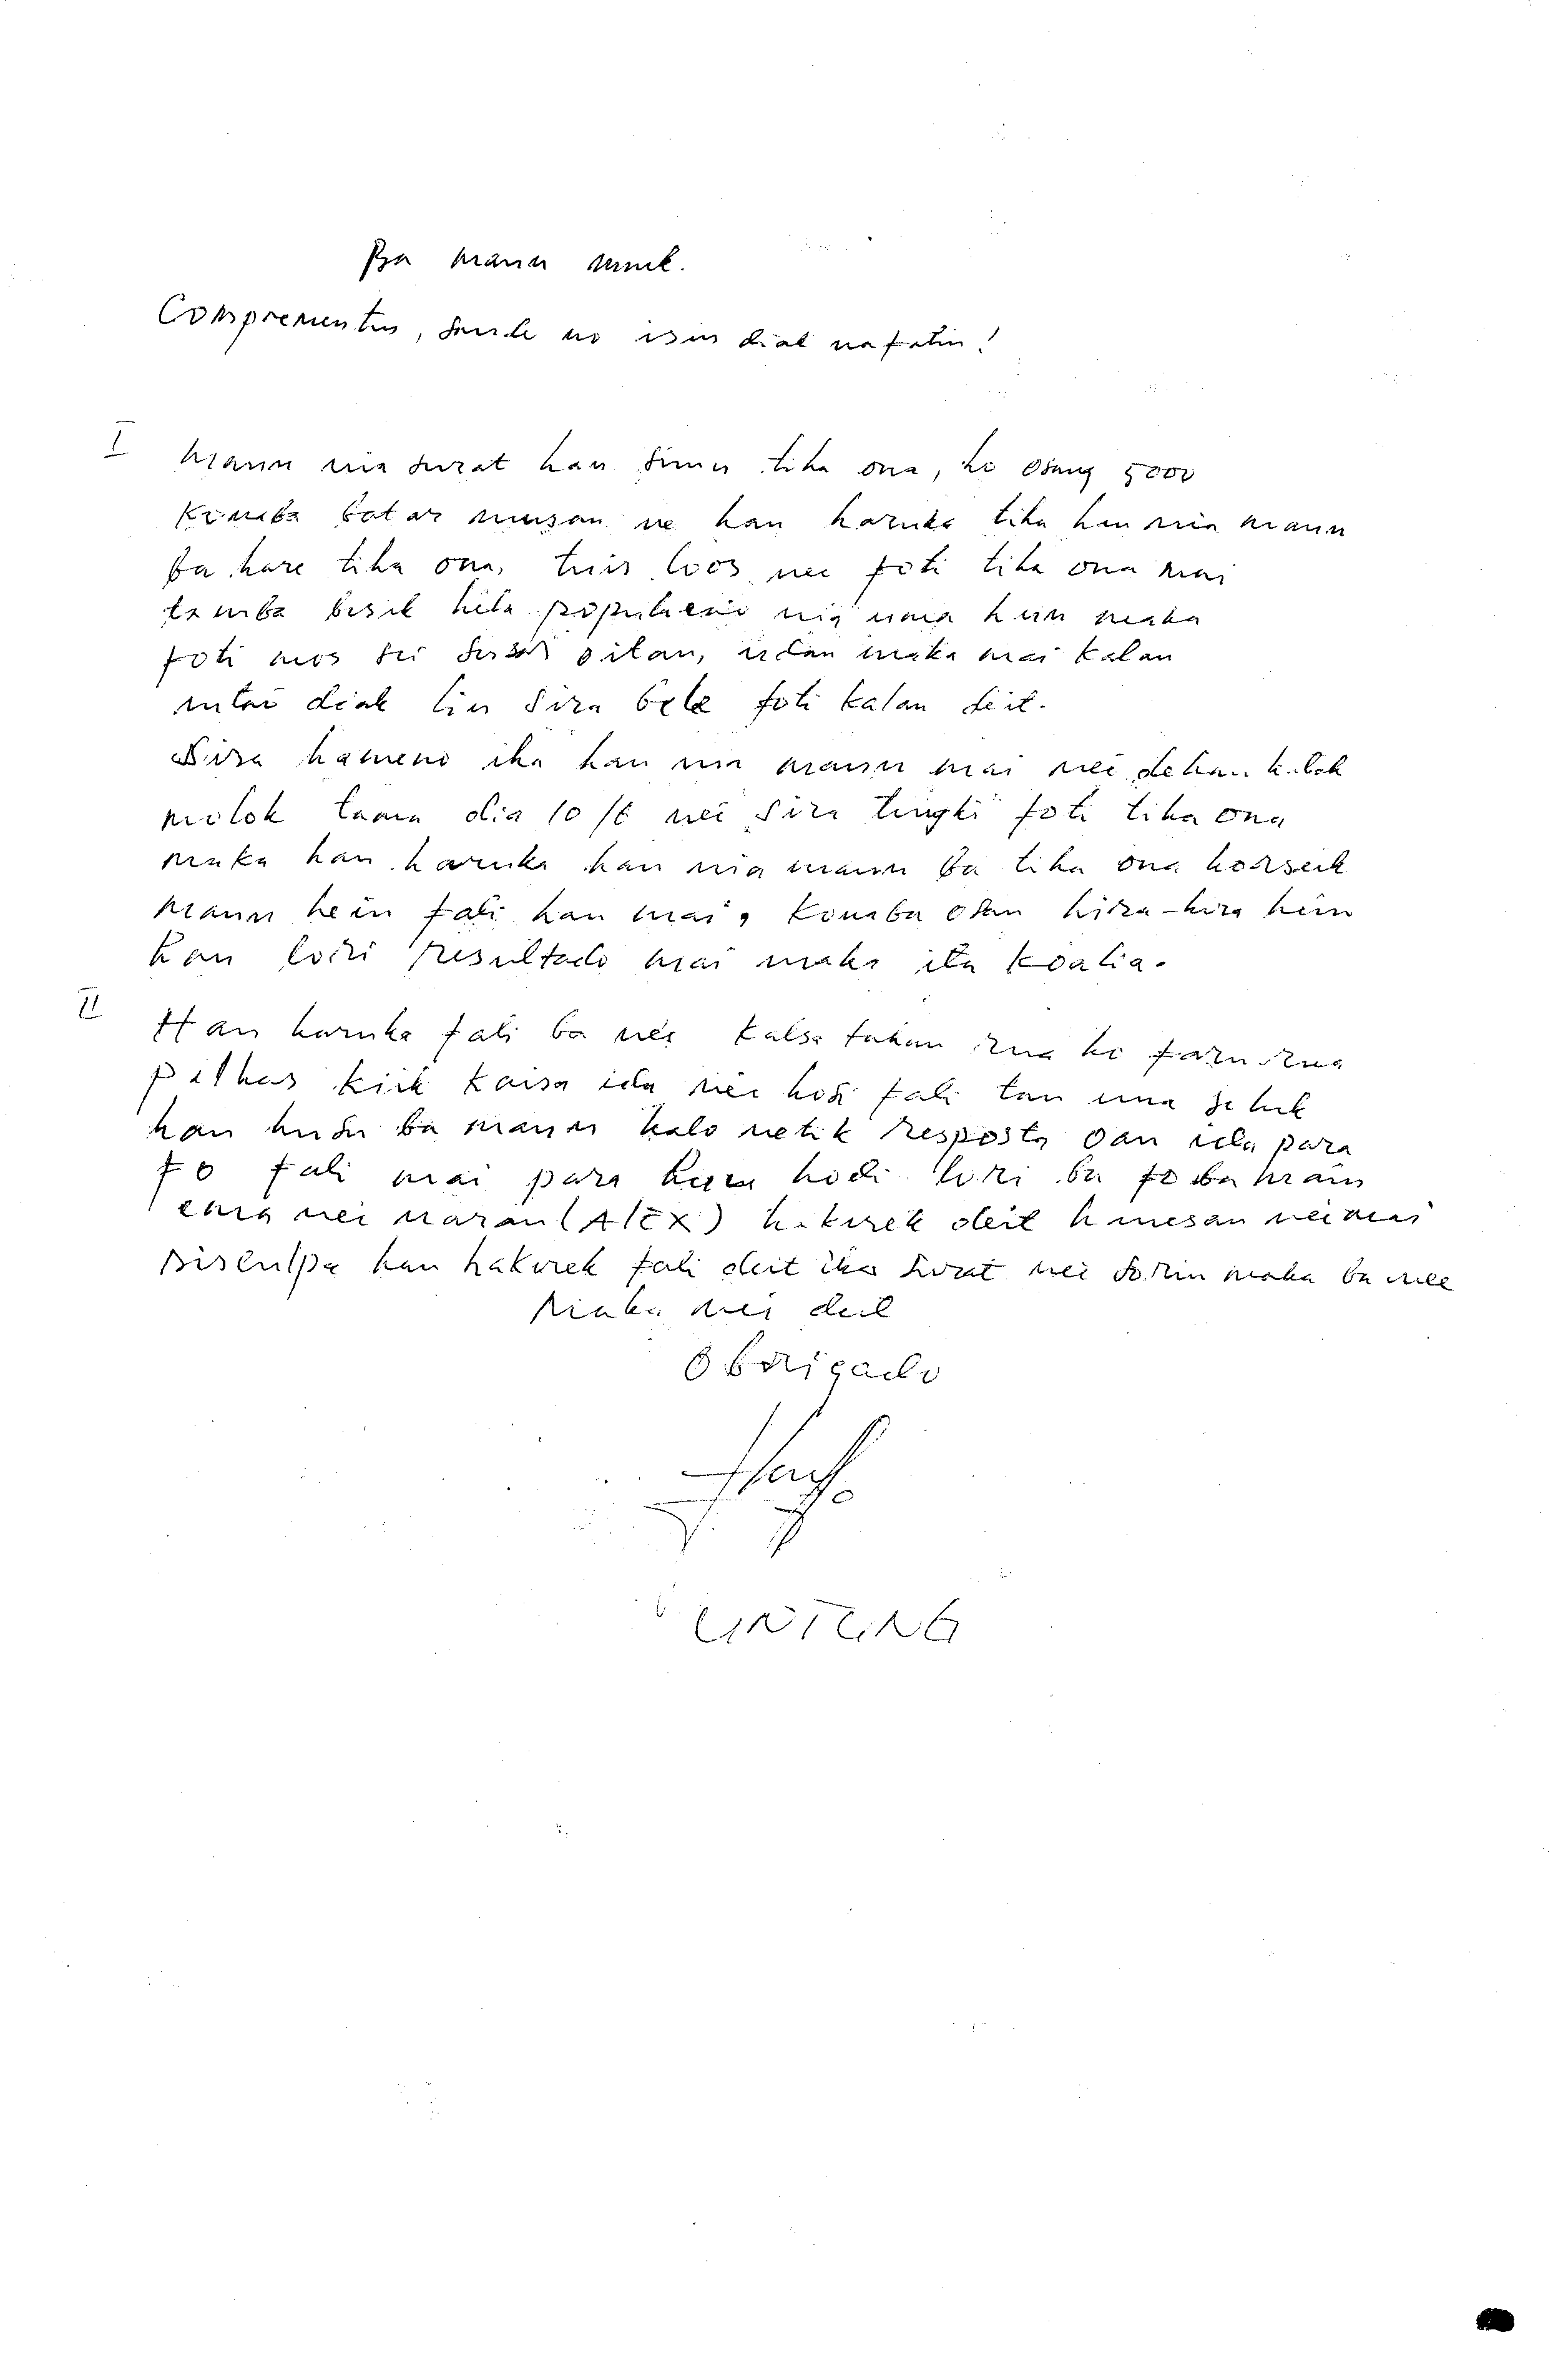 Ba maun
Comprementus, saude no isin diak nafatin!
I Maun nia surat hau simu tiha ona, ho osang 5000
Konaba batar musan ne hau haruka tiha hau nia maun
ba hare tiha ona, tuir loos nee foti tiha ona mai
tamba besik hela populasaun nia uma hein maka
foti mos sei susar oitoan, udan maka mai kalan
diak liu sira bele foti kalan deit.
Sira hameno iha hau nia maun mai nei dehan katak
molok tama dia 10 /6 nei sira tingki foti tiha ona
maka hau haruka hau nia maun ba tiha ona horseik
Maun hein fali hau mai, konaba osan hira-hira hein
hau lori resultado mai maka ita koalia.
II Hau haruka fali ba nei kalsa tahan rua ho faru rua
pilhas kiik kaisa ida nei hodi fali tau uma
hau husu ba maun kalo netik resposta oan ida para
fo fali mai para hau hodi lori ba fo ba maun
ema nei naran (Alex) hakerek deit hanesan nei mai
Disculpa hau hakerek fali deit iha surat nei sorin maka ba nee
Maka nei deit
Obrigado
UNTUNG